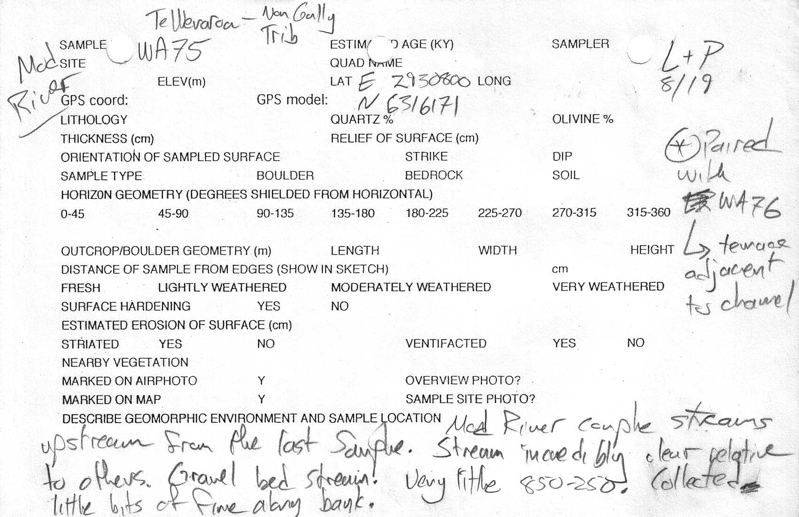 Te Weraroa - Non Gully
Trib
SAMPLE WA75 ESTIM D AGE (KY) SAMPLER L+P
SITE QUAD NAME 8/19
Mod River
ELEV(m) LAT E 2930800 LONG
GPS coord: GPS model: N 6316171
LITHOLOGY QUARTZ % OLIVINE %
THICKNESS (cm) RELIEF OF SURFACE (cm)
ORIENTATION OF SAMPLED SURFACE STRIKE DIP
SAMPLE TYPE BOULDER BEDROCK SOIL
HORIZ0N GEOMETRY (DEGREES SHIELDED FROM HORIZONTAL)
0-45 45-90 90-135 135-180 180-225 225-270 270-315 315-360
* Paired
with
WA76
↳ terrace
adjacent
to channel
OUTCROP/BOULDER GEOMETRY (m) LENGTH WIDTH HEIGHT
DISTANCE OF SAMPLE FROM EDGES (SHOW IN SKETCH) cm
FRESH LIGHTLY WEATHERED MODERATELY WEATHERED VERY WEATHERED
SURFACE HARDENING YES NO
ESTIMATED EROSION OF SURFACE (cm)
STRIATED YES NO VENTIFACTED YES NO
NEARBY VEGETATION
MARKED ON AIRPHOTO Y OVERVIEW PHOTO?
MARKED ON MAP Y SAMPLE SITE PHOTO?
DESCRIBE GEOMORPHIC ENVIRONMENT AND SAMPLE LOCATION Mod River couple streams
upstream from the last sample. Stream incredibly clear relative
to others. Gravel bed stream! Very little 850-250. Collected
little bits of fine along bank.